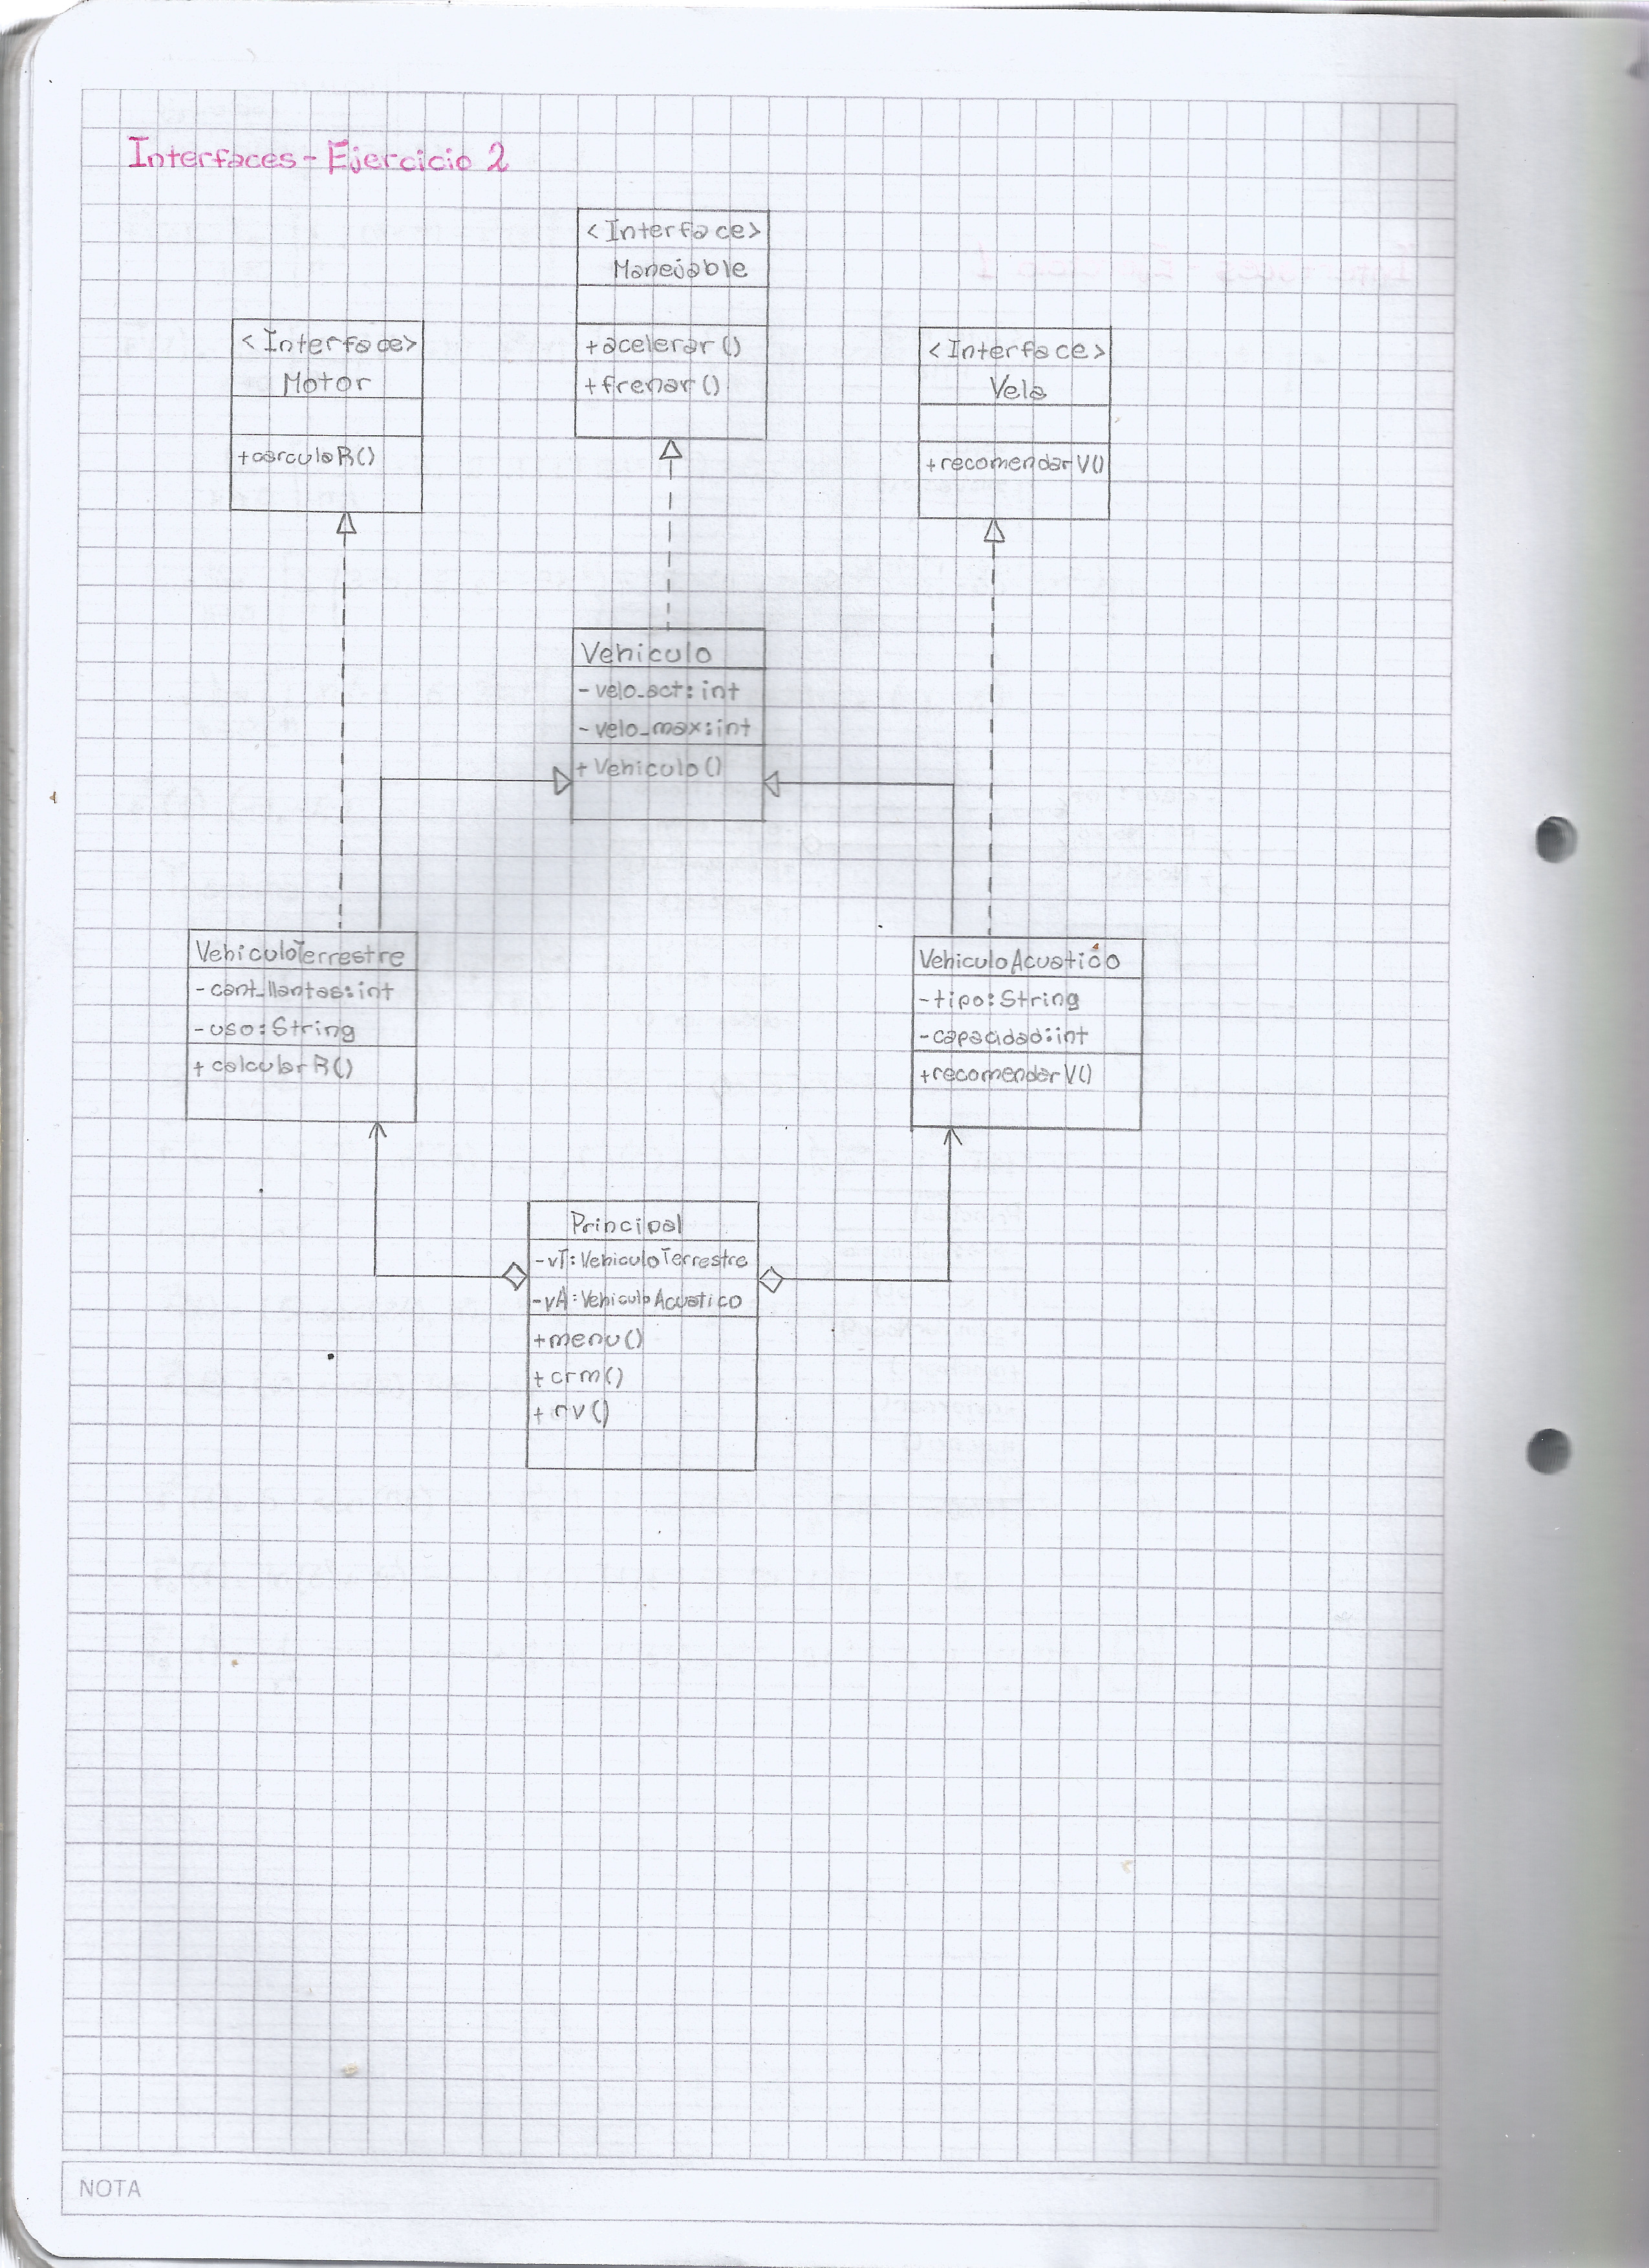 Interfaces - Ejercicio 2
<Interface>
Manejable
+acelerar()
+frenar()
<Interface>
Motor
+carculaR()
<Interface>
Vela
+recomendarV()
Vehiculo
- velo_act: int
- velo_max:int
+ Vehiculo()
VehiculoTerrestre
- cant_llantas:int
- uso: String
+ calcularR()
VehiculoAcuatico
-tipo: String
-capacidad:int
+recomendarV()
Principal
-vT: VehiculoTerrestre
-vA: VehiculoAcuatico
+menu()
+crm()
+rv()
NOTA